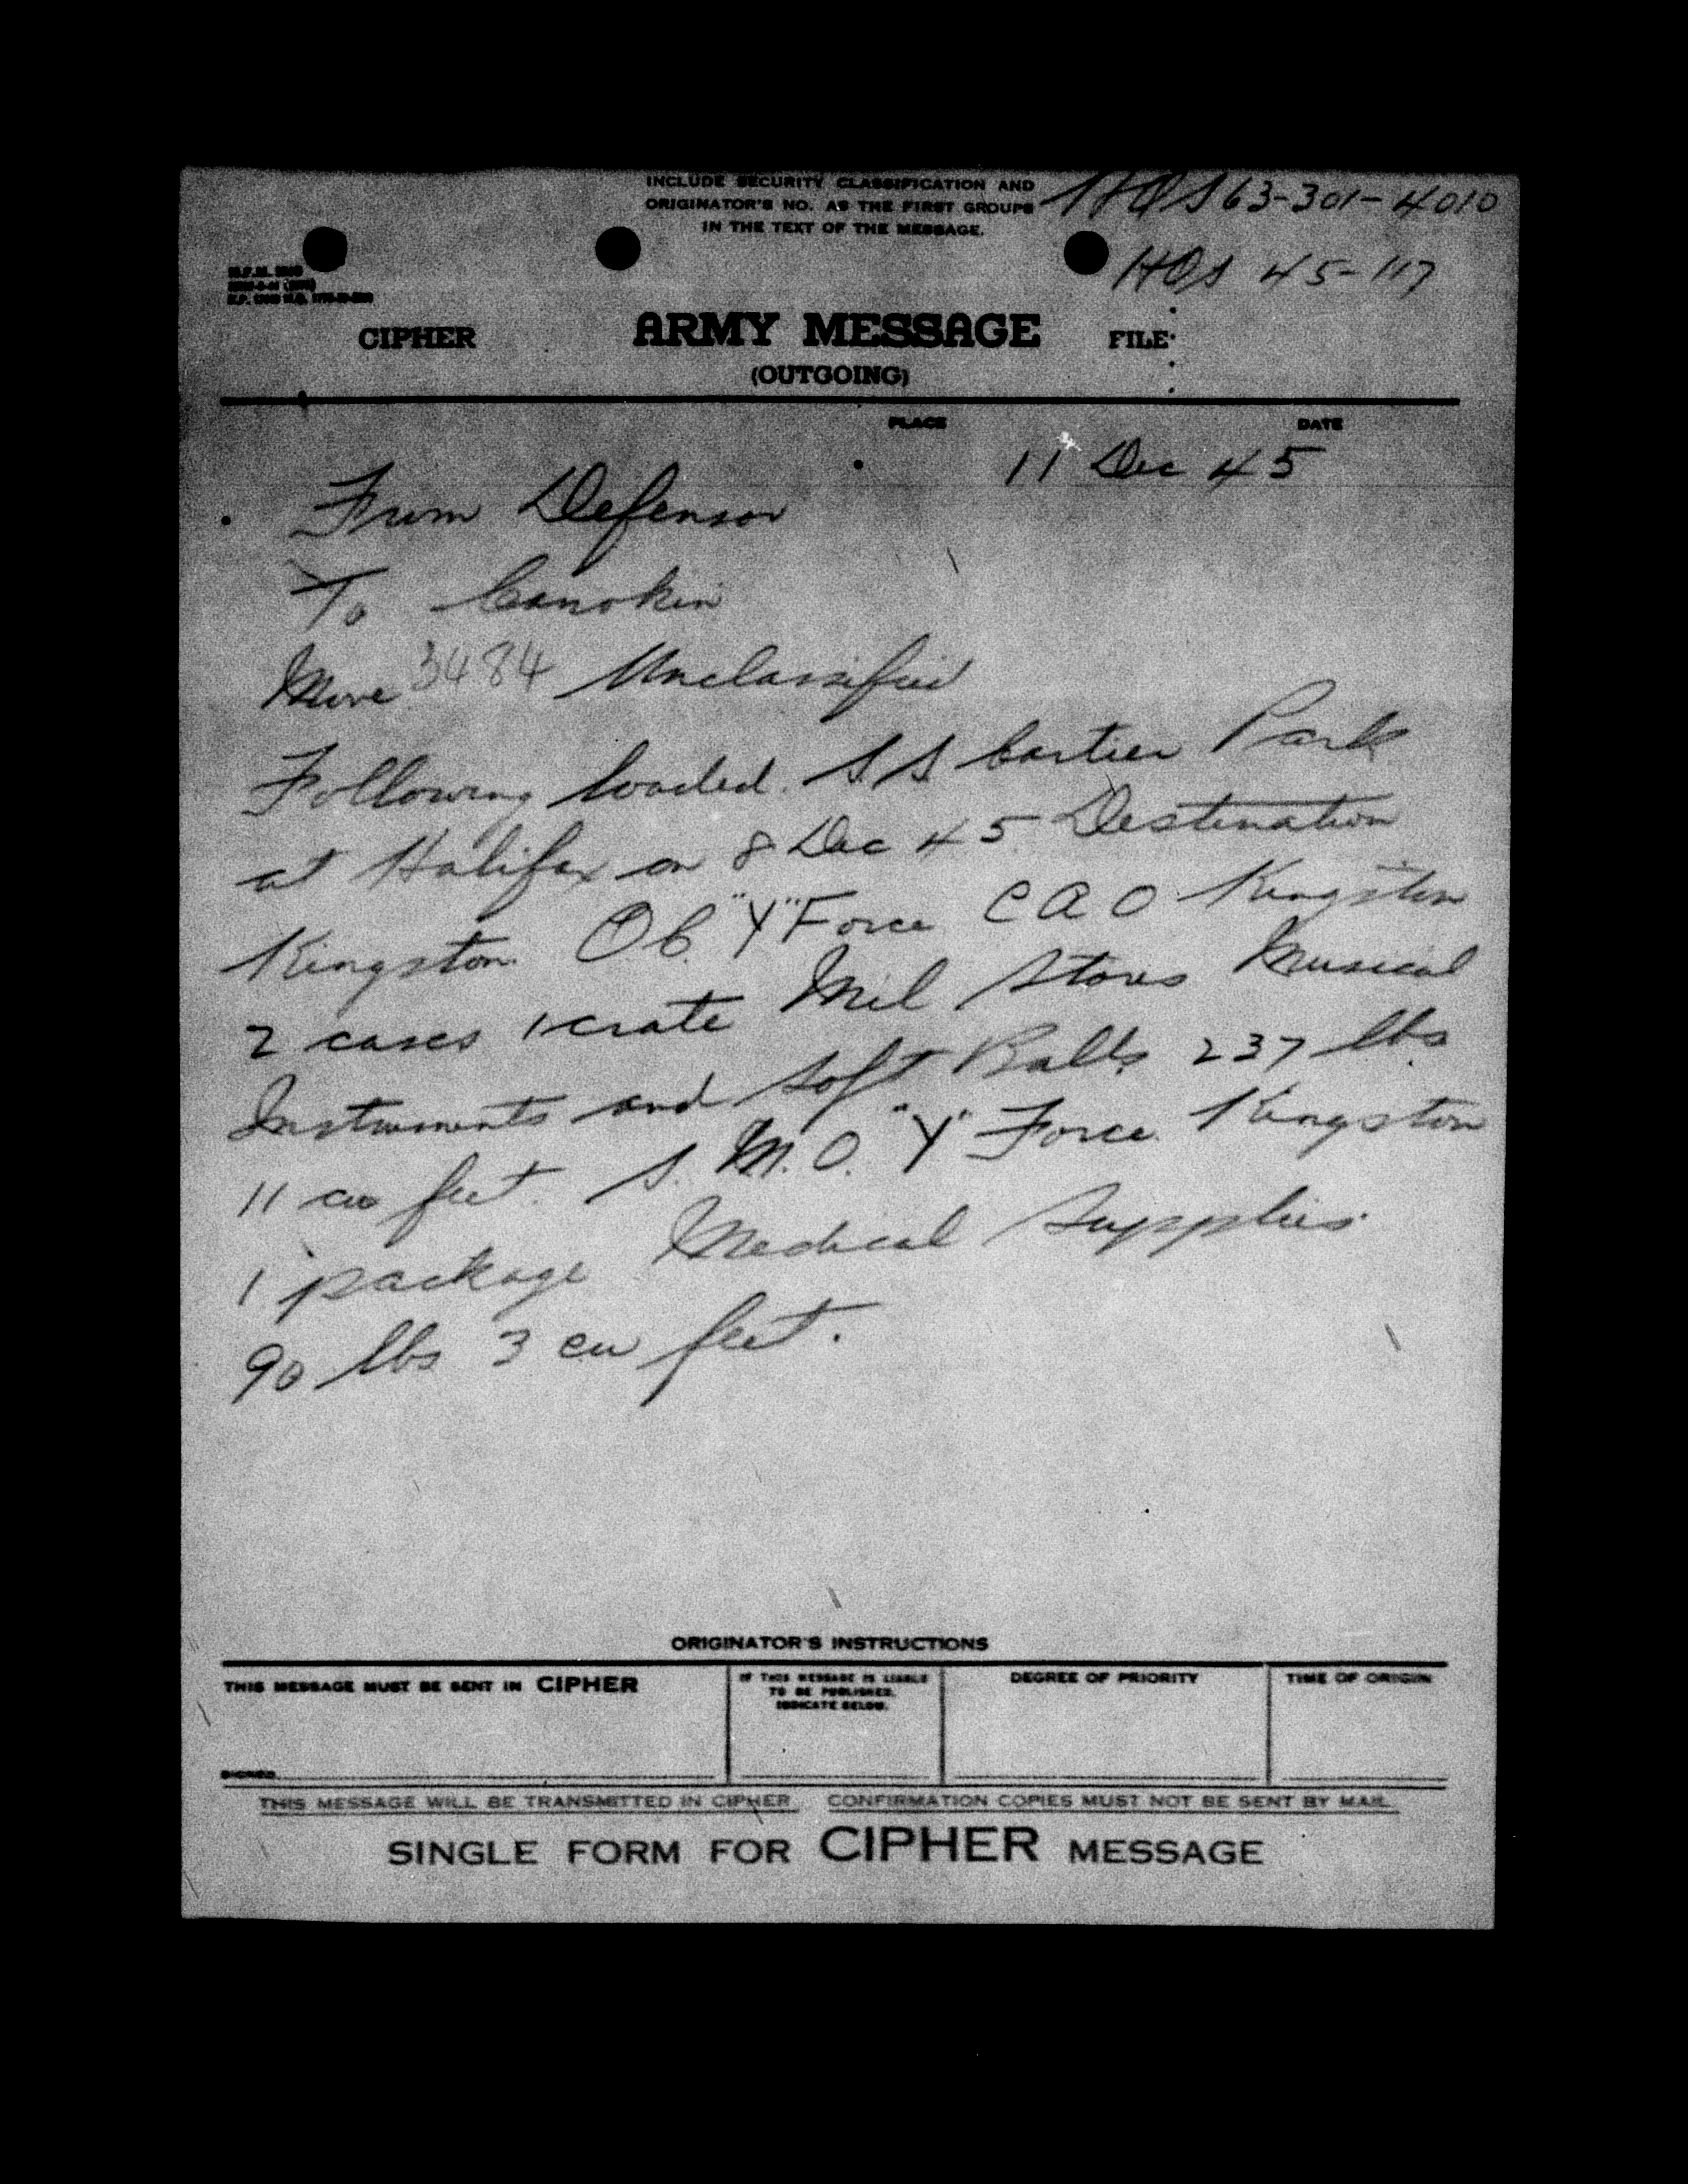 INCLUDE SECURITY CLASSIFICATION AND
ORIGINATOR'S NO. AS THE FIRST GROUPS
IN THE TEXT OF THE MESSAGE.
HQS 63-301-4010
HQS 45-117
CIPHER
ARMY MESSAGE
FILE
(OUTGOING)
PLACE
DATE
11 Dec 45
From Defensor
To Canokin
Move 3484 Unclassified
Following loaded S.S. Cartier Park
at Halifax on 8 Dec 45 Destination
Kingston. O.C. "Y" Force C A O Kingston
2 cases 1 crate Mil Stores Musical
Instruments and Soft Balls 237 lbs.
11 cu feet. S. M. O. "Y" Force Kingston
1 package Medical Supplies.
90 lbs 3 cu feet.
ORIGINATOR'S INSTRUCTIONS
THIS MESSAGE MUST BE SENT IN CIPHER
IF THIS MESSAGE IS LIABLE
TO BE PUBLISHED,
INDICATE BELOW.
DEGREE OF PRIORITY
TIME OF ORIGIN
SIGNED
THIS MESSAGE WILL BE TRANSMITTED IN CIPHER CONFIRMATION COPIES MUST NOT BE SENT BY MAIL
SINGLE FORM FOR CIPHER MESSAGE